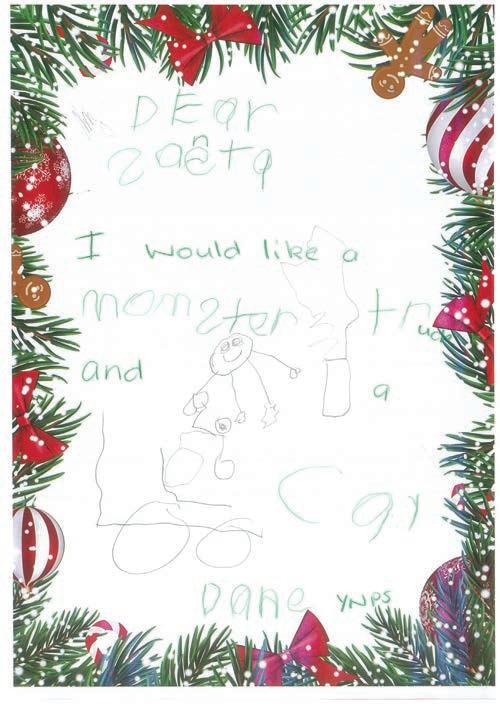 DEar
Santa
I would like a
monster truck
and a
Car
Dane YNPS